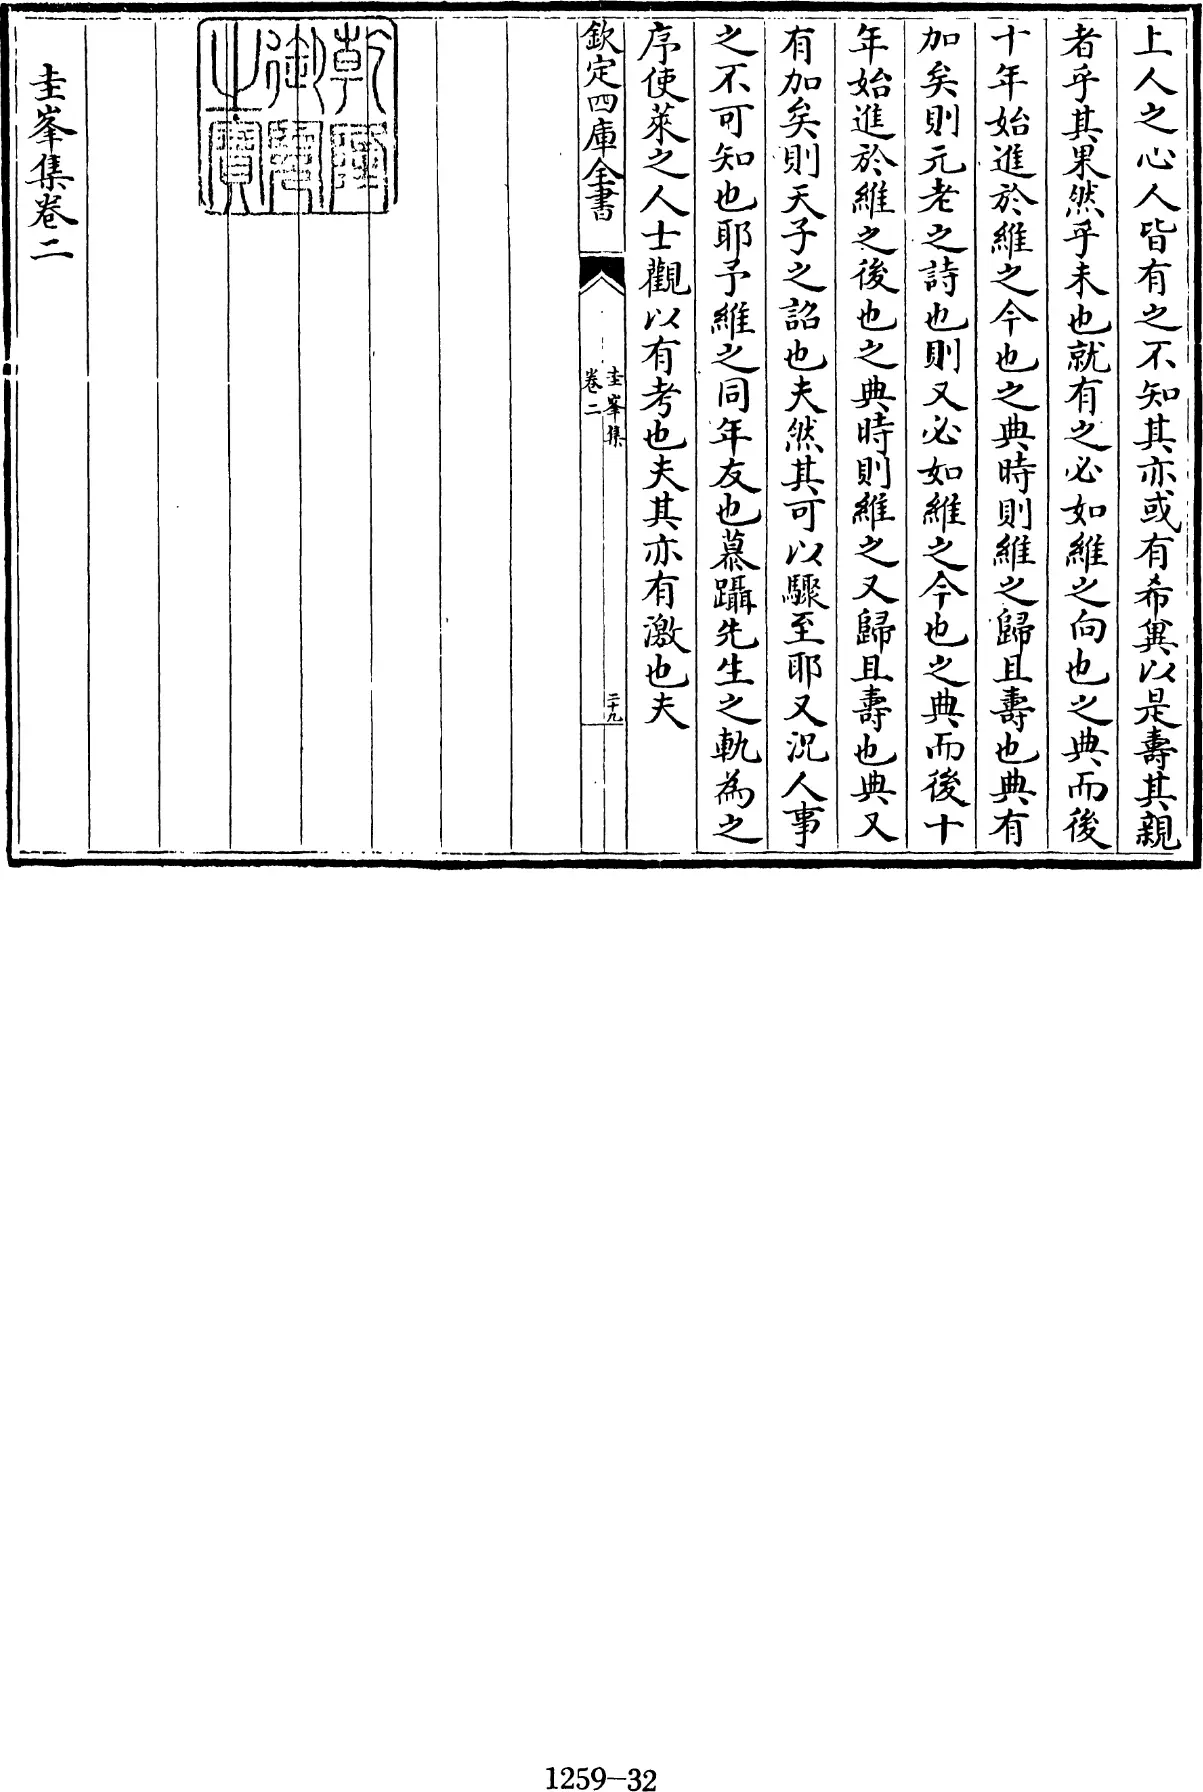 上人之心人皆有之不知其亦或有希兾以是壽其親
者乎其果然乎未也就有之必如維之向也之典而後
十年始進於維之今也之典時則維之歸且壽也典有
加矣則元老之詩也則又必如維之今也之典而後十
年始進於維之後也之典時則維之又歸且壽也典又
有加矣則天子之詔也夫然其可以驟至耶又況人事
之不可知也耶予維之同年友也慕躡先生之軌為之
序使萊之人士觀以有考也夫其亦有激也夫
欽定四庫全書
圭峯集
卷二
二十九
乾隆御覽之寶
圭峯集卷二
1259-32